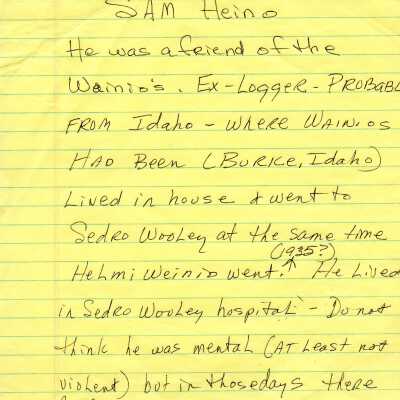 SAM Heino
He was a friend of the
Wainio's. Ex-Logger - PROBABL
FROM Idaho - WHERE WAINIOS
HAD Been (BURKE, Idaho)
Lived in house & went to
SEDRO WOOLEY at the same time
(1935?)
HeLmi Weinio went. He Lived
in Sedro Wooley hospital - Do not
think he was mental (AT Least not
violent) but in those days there